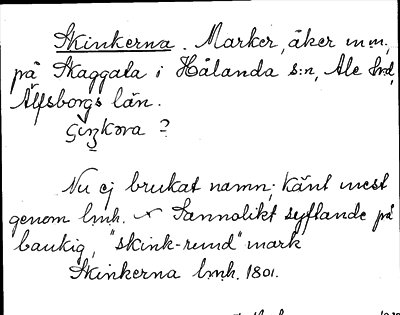 Skinkerna. Marker, åker m.m.,
på Skaggala i Hålanda s:n, Ale hrd,
Älfsborgs län.
Nu ej brukat namn; känt mest
genom lmh. Sannolikt syftande på
baukig, "skink-rund" mark
Skinkerna lmh. 1801.